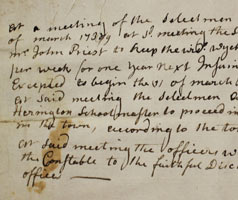 at a meeting of the Selectmen
of march 1738/9 at sd. meeting the S
mr. John Priest to keep the wid.
per week for one year Next Insuin
Excepted to begin the 01 of march
at Said meeting the Selectmen
Herrington School master to proceed
in the town, according to the to
at Said meeting the officers w
the Constable to the faithful Disc
offices